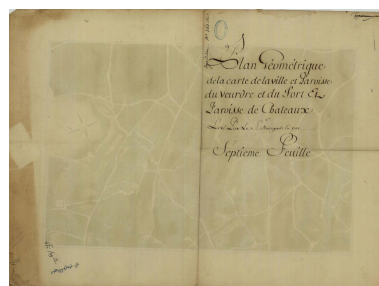 Plan Géométrique
de la carte de la ville et Paroisse
du veurdre et du Port Et
Paroisse de Chateaux
Septième Feuille